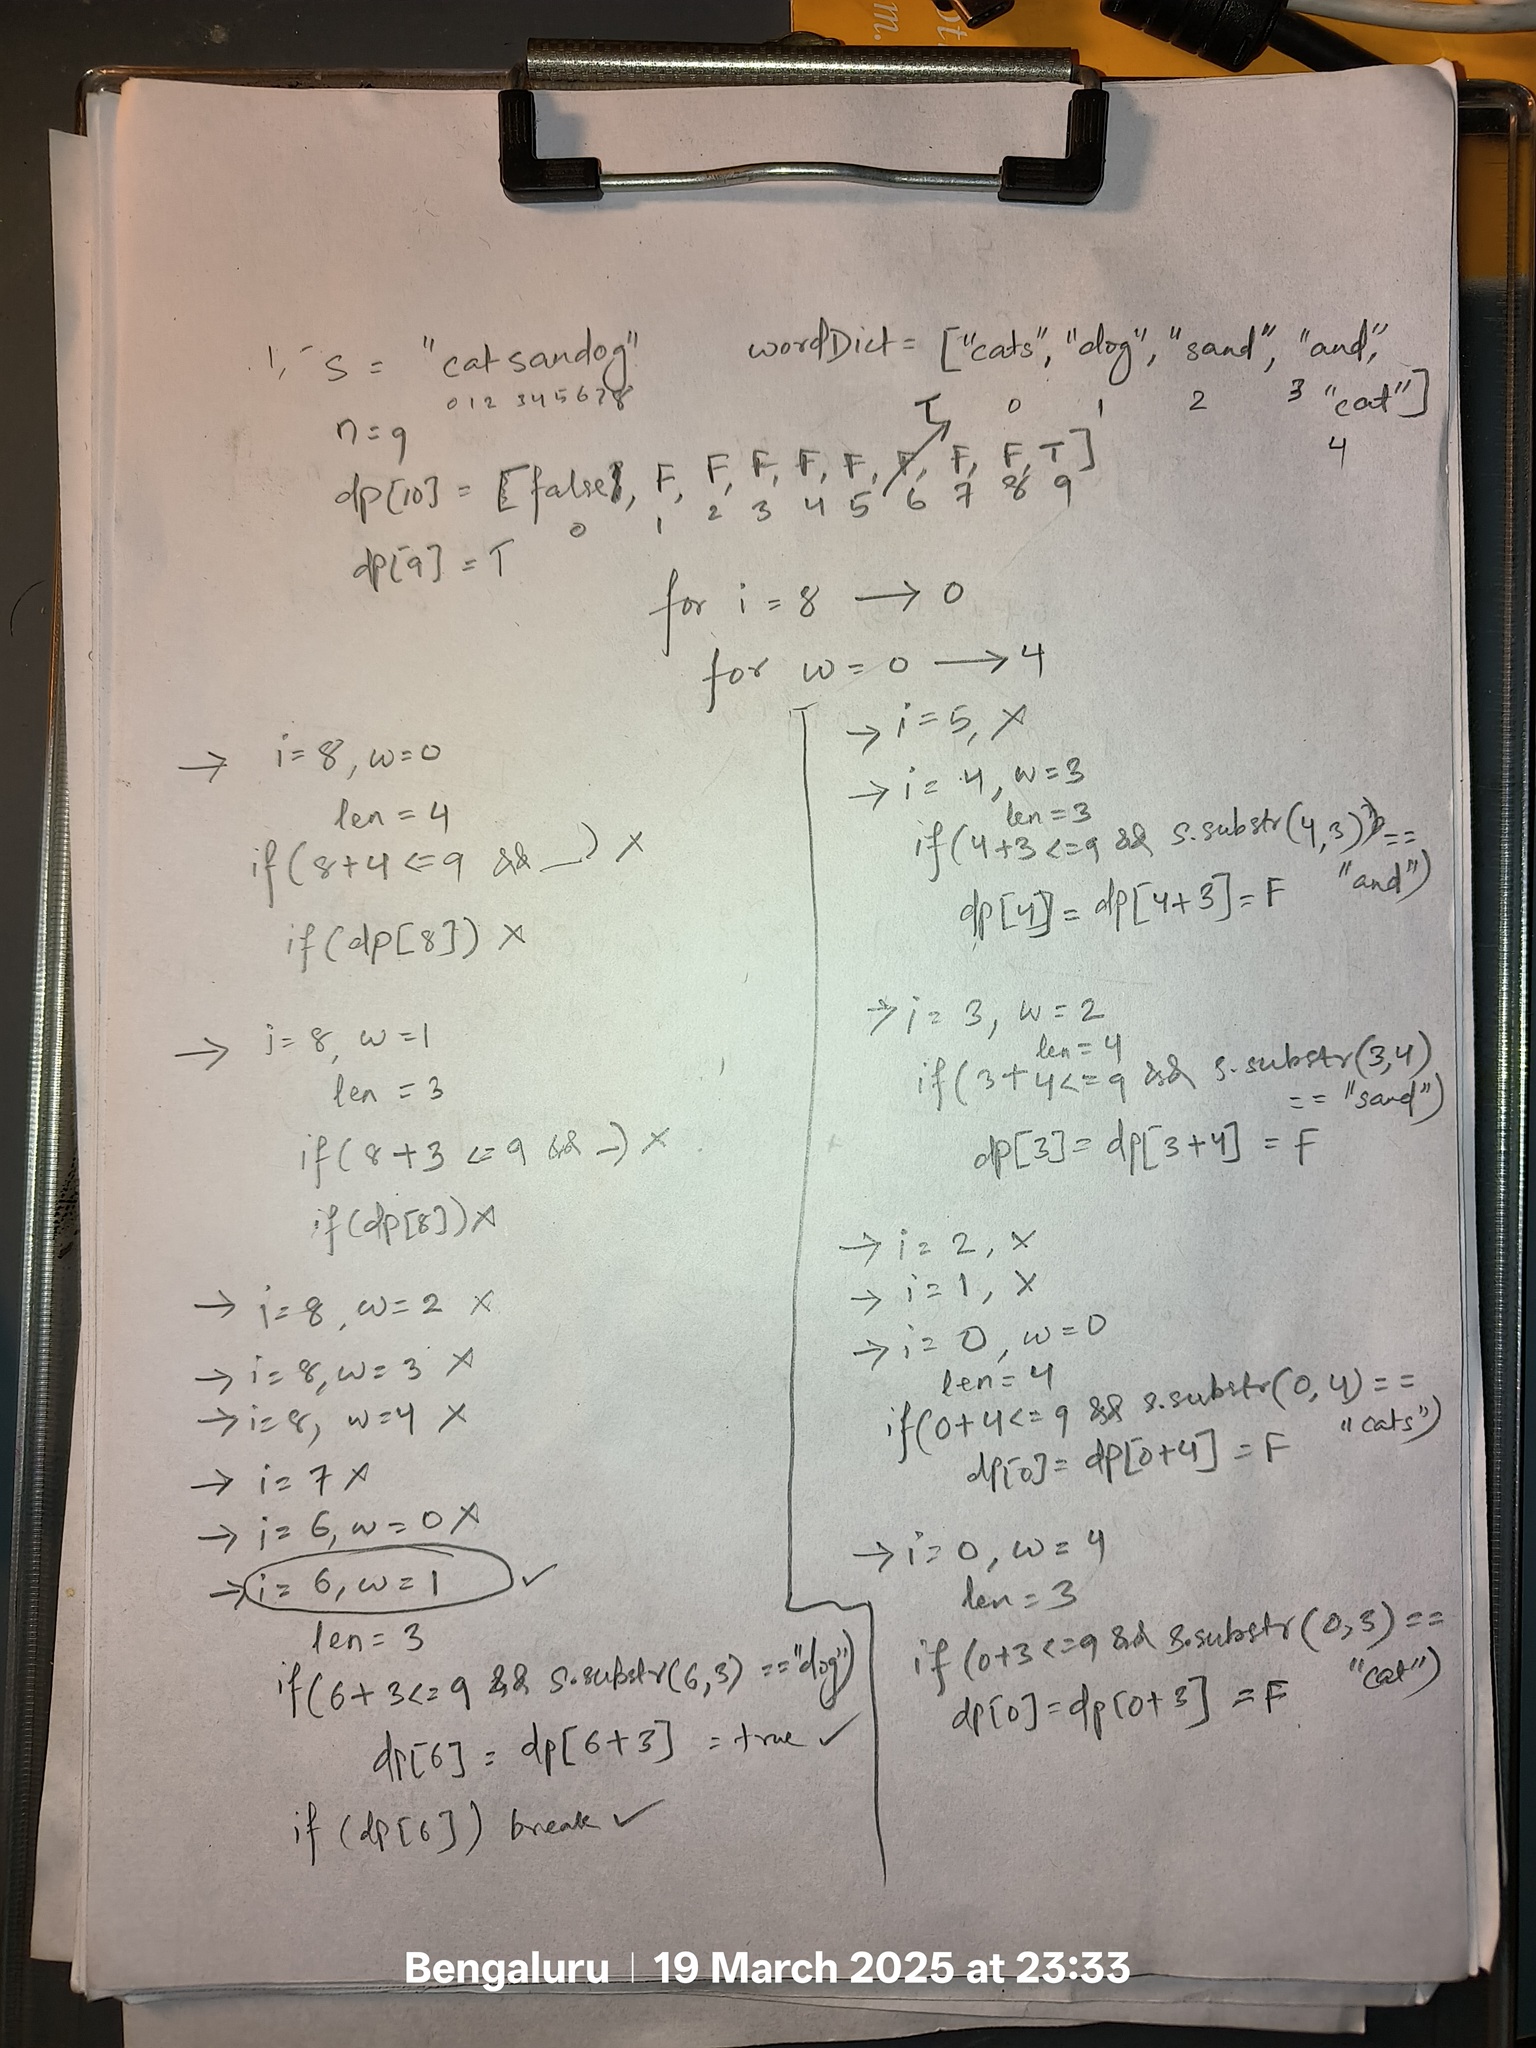 ot.
m.
1, s = "catsandog"
wordDict = ["cats", "dog", "sand", "and",
"cat"]
0 1 2 3 4 5 6 7 8
0 1 2 3
4
n = 9
T
dp[10] = [false, F, F, F, F, F, F, F, F, T]
0 1 2 3 4 5 6 7 8 9
dp[9] = T
for i = 8 → 0
for w = 0 → 4
→ i = 8, w = 0
len = 4
if (8+4 <= 9 && _) X
if (dp[8]) X
→ i = 8, w = 1
len = 3
if (8+3 <= 9 && _) X
if (dp[8]) X
→ i = 8, w = 2 X
→ i = 8, w = 3 X
→ i = 8, w = 4 X
→ i = 7 X
→ i = 6, w = 0 X
→ i = 6, w = 1 ✓
len = 3
if (6+3 <= 9 && s.substr(6,3) == "dog")
dp[6] = dp[6+3] = true ✓
if (dp[6]) break ✓
→ i = 5, X
→ i = 4, w = 3
len = 3
if (4+3 <= 9 && s.substr(4,3) ==
"and")
dp[4] = dp[4+3] = F
→ i = 3, w = 2
len = 4
if (3+4 <= 9 && s.substr(3,4)
== "sand")
dp[3] = dp[3+4] = F
→ i = 2, X
→ i = 1, X
→ i = 0, w = 0
len = 4
if (0+4 <= 9 && s.substr(0,4) ==
"cats")
dp[0] = dp[0+4] = F
→ i = 0, w = 4
len = 3
if (0+3 <= 9 && s.substr(0,3) ==
"cat")
dp[0] = dp[0+3] = F
Bengaluru | 19 March 2025 at 23:33